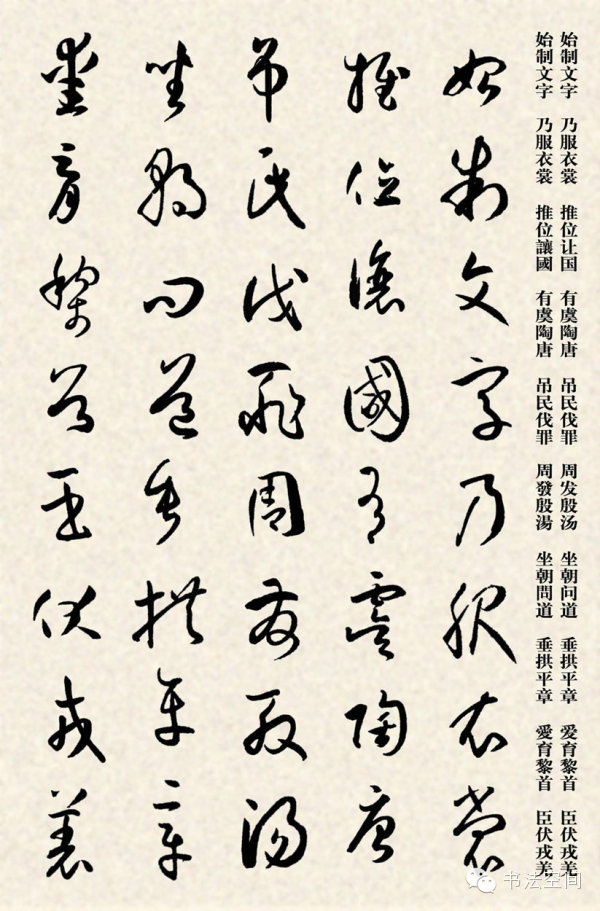 始制文字 乃服衣裳 推位让国 有虞陶唐 吊民伐罪 周发殷汤 坐朝问道 垂拱平章 爱育黎首 臣伏戎羌
始制文字 乃服衣裳 推位讓國 有虞陶唐 吊民伐罪 周發殷湯 坐朝問道 垂拱平章 愛育黎首 臣伏戎羌
始制文字乃服衣裳
推位讓國有虞陶唐
吊民伐罪周發殷湯
坐朝問道垂拱平章
愛育黎首臣伏戎羌
书法空间